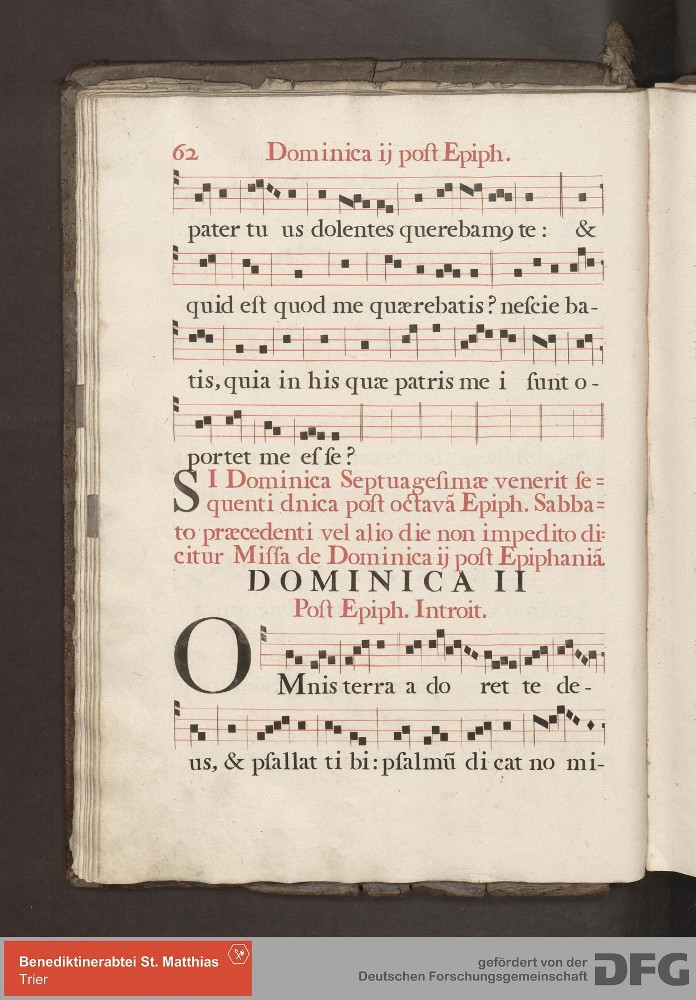 62 Dominica ij poſt Epiph.
pater tu us dolentes querebam9 te : &
quid eſt quod me quærebatis? neſcie ba-
tis, quia in his quæ patris me i ſunt o-
portet me eſ ſe?
SI Dominica Septuageſimæ venerit ſe=
quenti dnica poſt octavã Epiph. Sabba=
to præcedenti vel alio die non impedito di=
citur Miſſa de Dominica ij poſt Epiphaniã.
DOMINICA II
Poſt Epiph. Introit.
OMnis terra a do ret te de-
us, & pſallat ti bi: pſalmũ di cat no mi-
Benediktinerabtei St. Matthias
Trier
gefördert von der
Deutschen Forschungsgemeinschaft
DFG